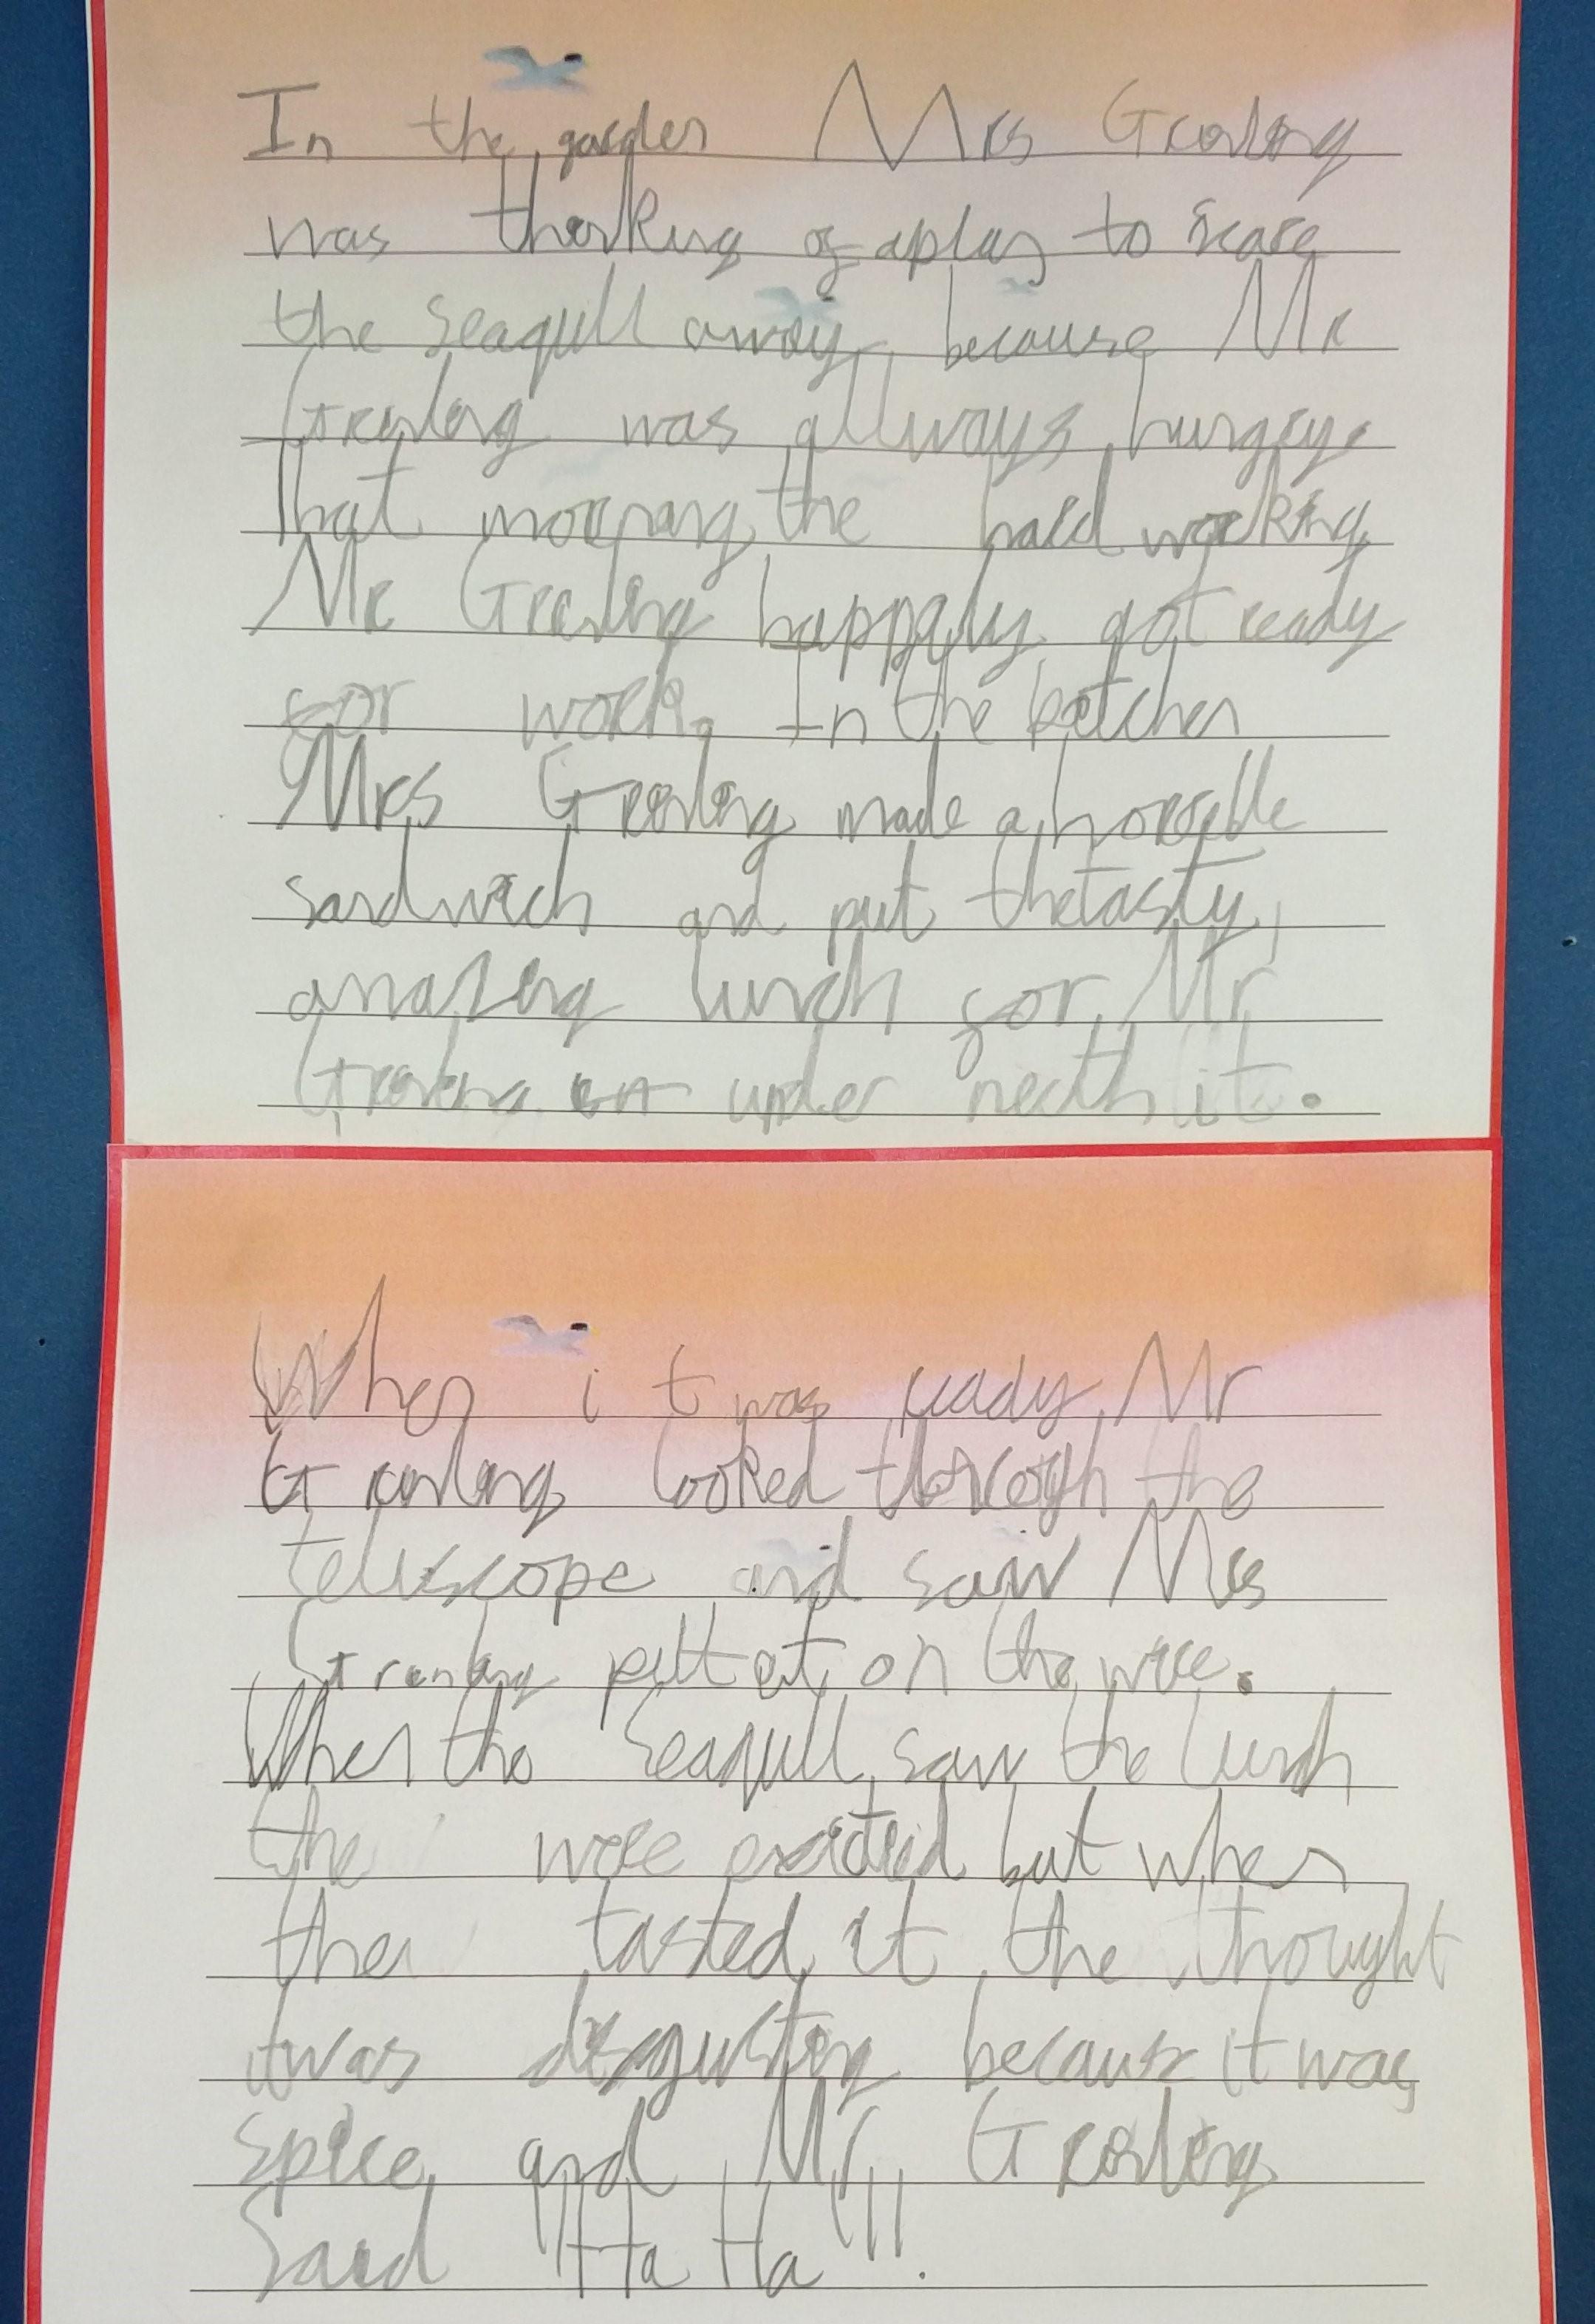 In the garden Mrs Grinling
was thinking of a plan to scare
the seagull away, because Mr
Grinling was allways hungry.
That morning, the hard working
Mr Grinling happily got ready
for work. In the kitchen
Mrs Grinling made a horrible
sandwich and put the tasty,
amazing lunch for Mr
Grinling under neath it.
When it was ready Mr
Grinling looked through the
teliscope and saw Mrs
Grinling putt it on the wire.
When the Seagull saw the lunch
the were excited but when
the tasted it the thought
it was disgusting because it was
spice and Mr Grinling
Said "Ha Ha"!!.